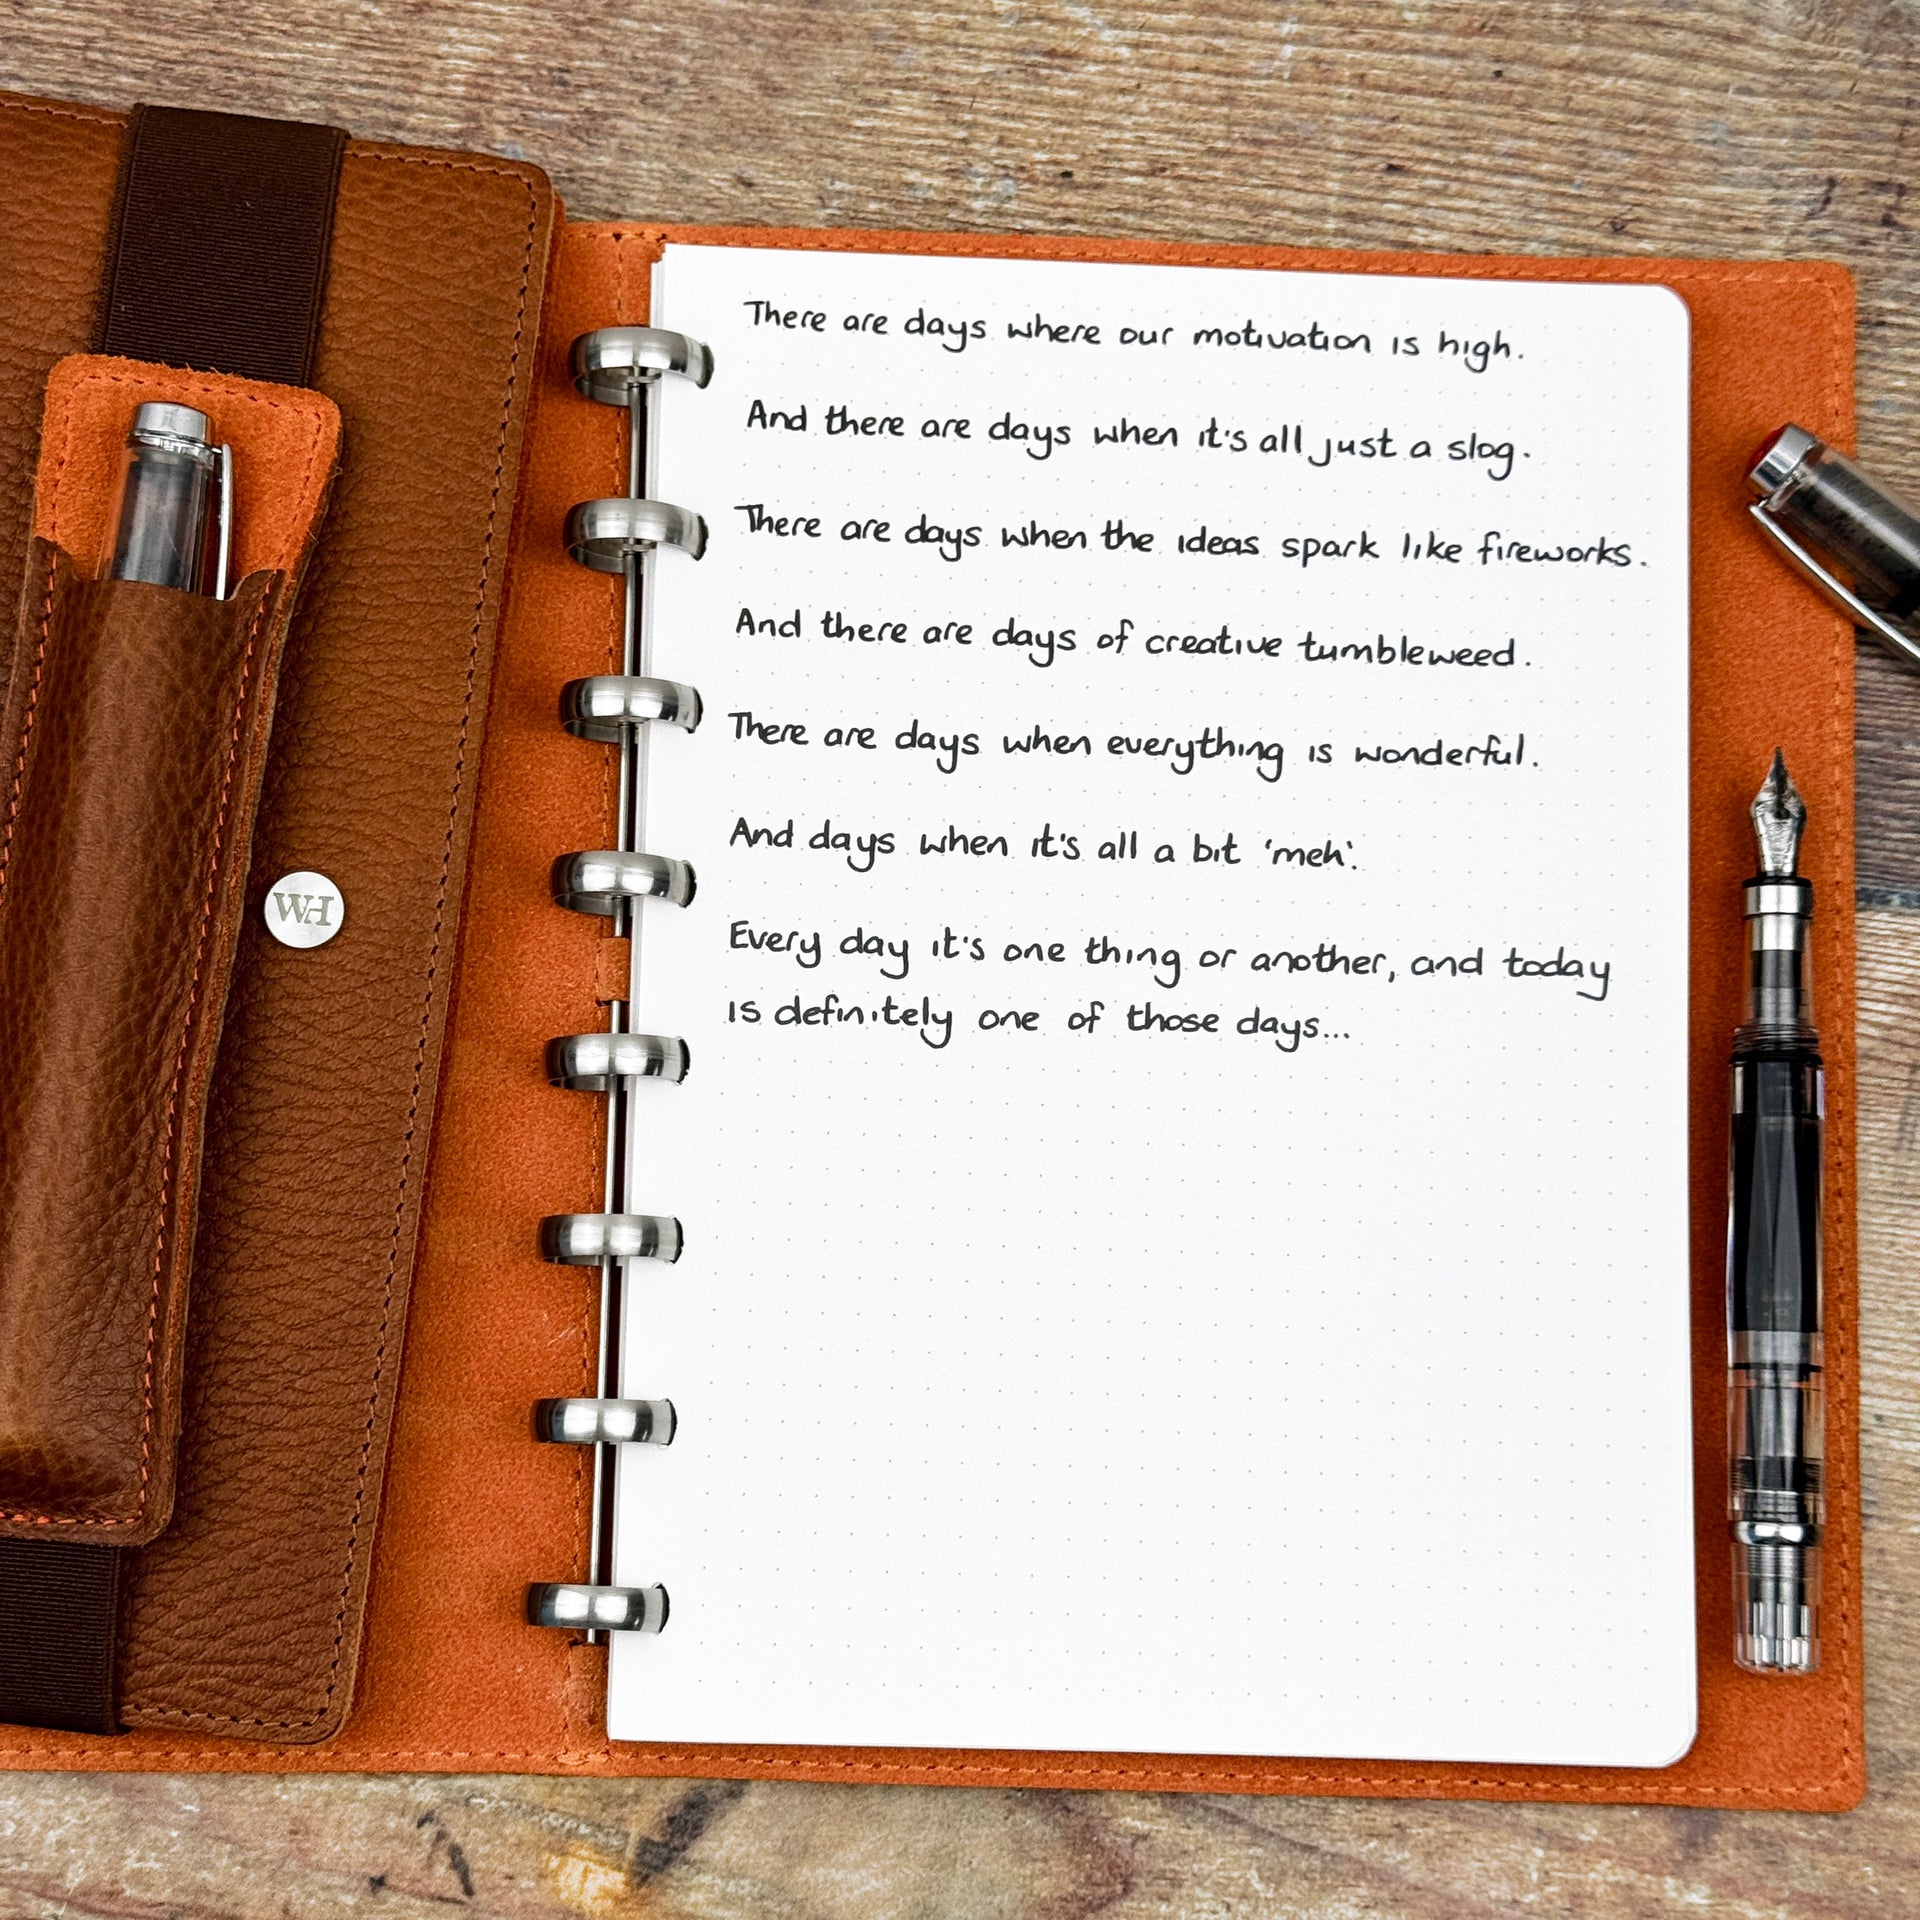 There are days where our motivation is high.
And there are days when it's all just a slog.
There are days when the ideas spark like fireworks.
And there are days of creative tumbleweed.
There are days when everything is wonderful.
And days when it's all a bit 'meh'.
Every day it's one thing or another, and today
is definitely one of those days...
WH